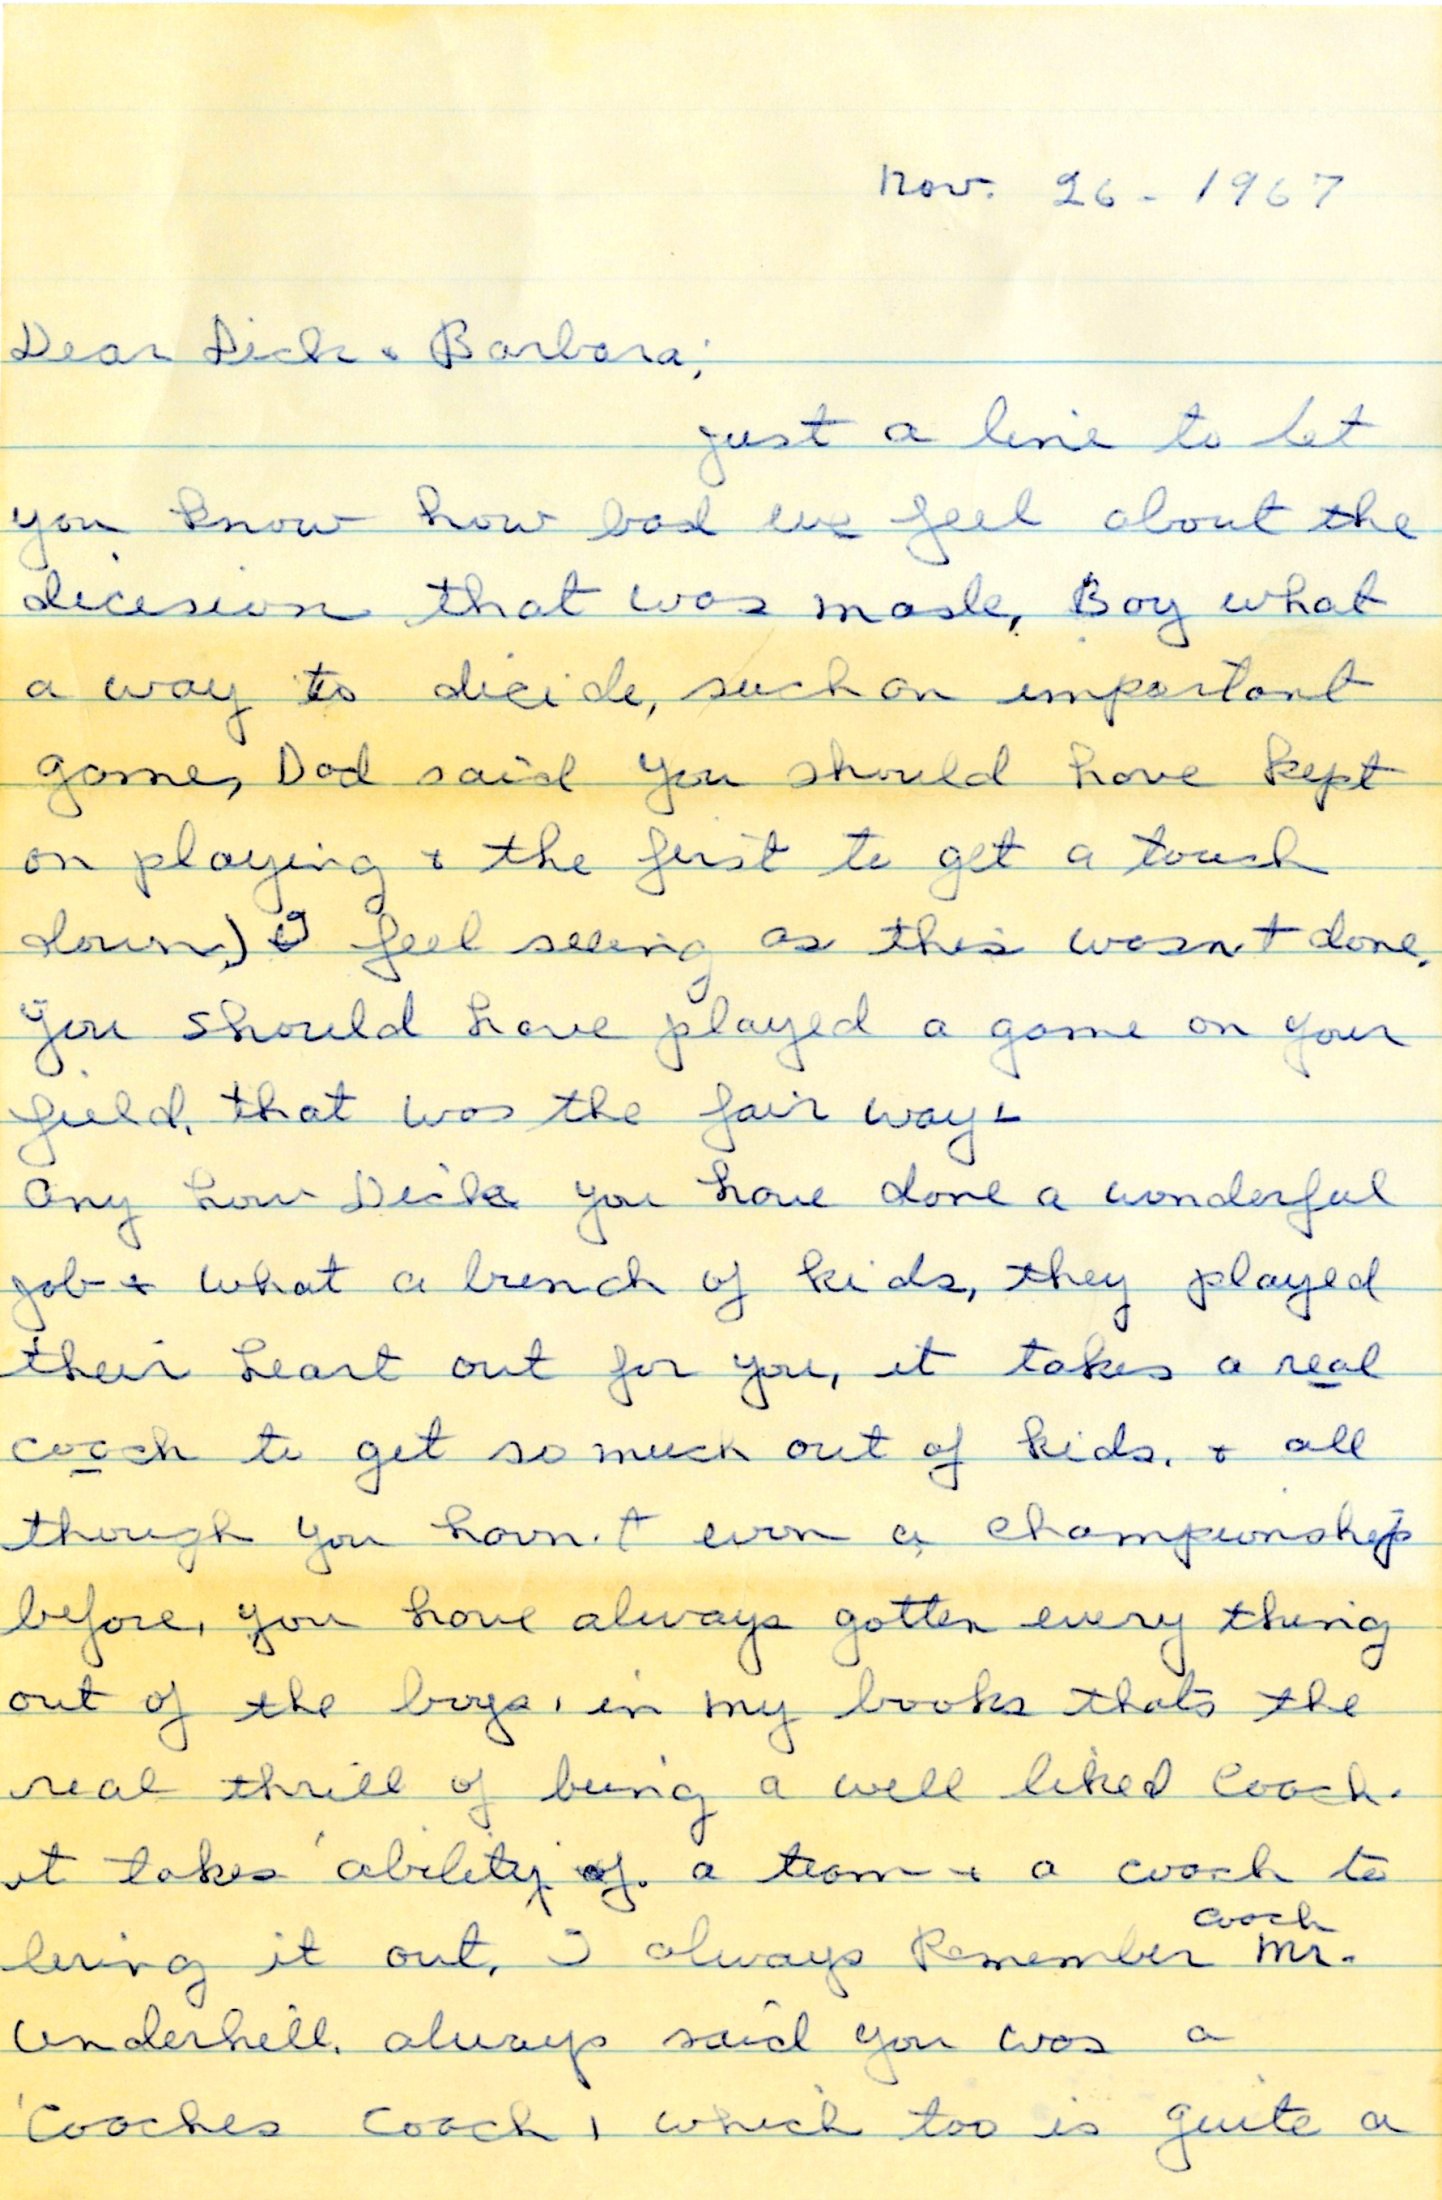 Nov. 26 - 1967
Dear Dick & Barbara;
just a line to let
you know how bad we feel about the
dicision that was made, Boy what
a way to dicide, such an important
game, Dad said you should have kept
on playing & the first to get a touch
down,) I feel seeing as this wasn't done,
you should have played a game on your
field, that was the fair way -
any how Dick you have done a wonderful
job & what a bunch of kids, they played
their heart out for you, it takes a real
coach to get so much out of kids. & all
though you havn't won a championship
before, you have always gotten every thing
out of the boys, in my books thats the
real thrill of being a well liked Coach.
it takes ability of a team & a coach to
bring it out, I always Remember coach Mr.
Underhill. always said you was a
'Coaches Coach, which too is quite a